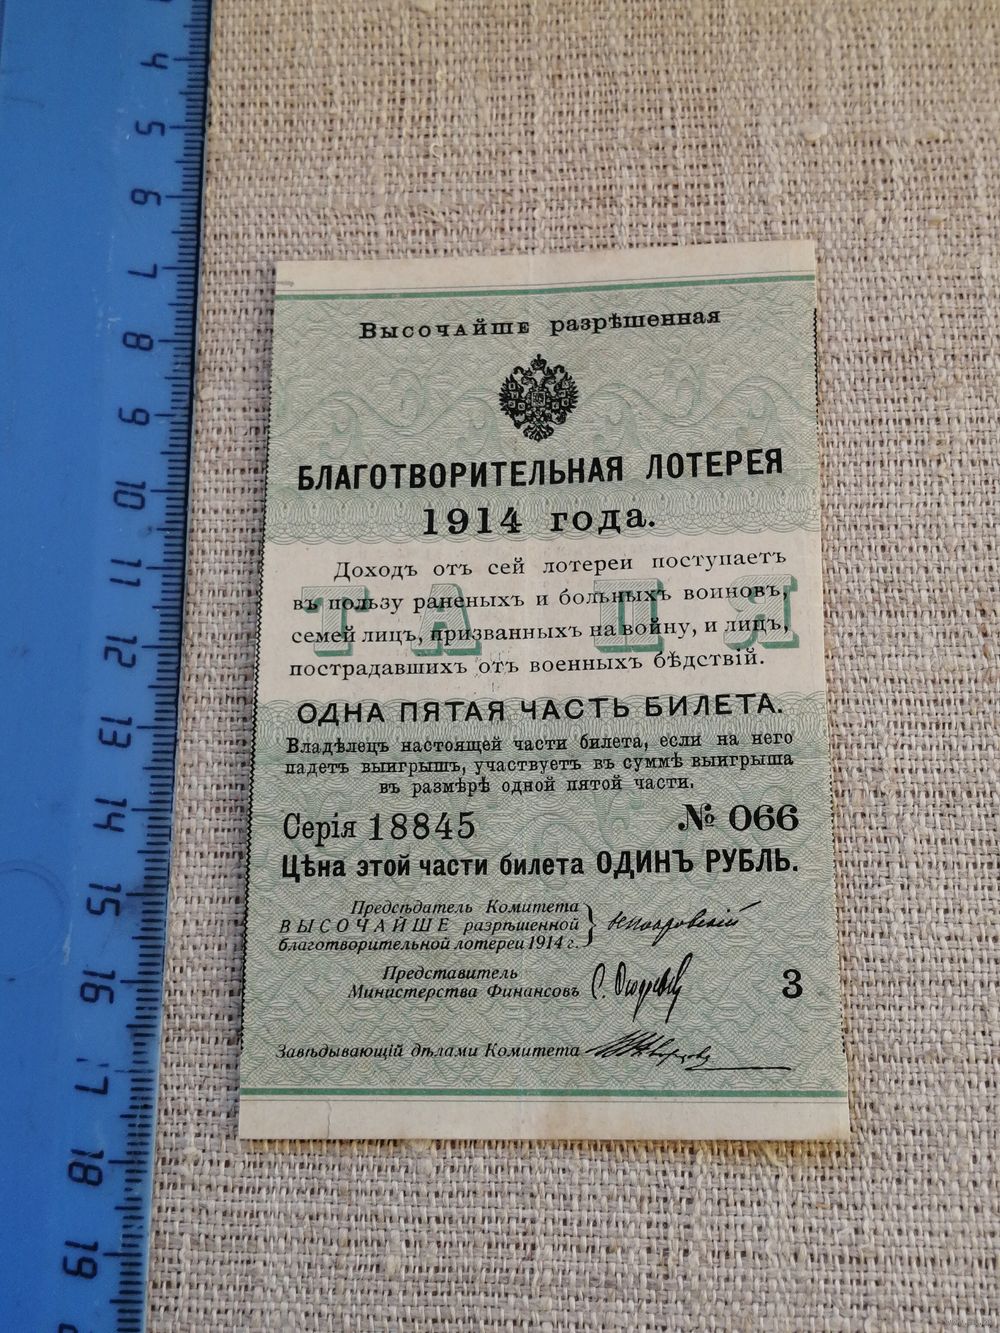 Высочайше разрѣшенная
БЛАГОТВОРИТЕЛЬНАЯ ЛОТЕРЕЯ
1914 года.
Доходъ отъ сей лотереи поступаетъ
въ пользу раненыхъ и больныхъ воиновъ,
семей лицъ, призванныхъ на войну, и лицъ,
пострадавшихъ отъ военныхъ бѣдствій.
ОДНА ПЯТАЯ ЧАСТЬ БИЛЕТА.
Владѣлецъ настоящей части билета, если на него
падетъ выигрышъ, участвуетъ въ суммѣ выигрыша
въ размѣрѣ одной пятой части.
Серія 18845 № 066
Цѣна этой части билета ОДИНЪ РУБЛЬ.
Предсѣдатель Комитета
ВЫСОЧАЙШЕ разрѣшенной
благотворительной лотереи 1914 г.
Представитель
Министерства Финансовъ
3
Завѣдывающій дѣлами Комитета
4
5
6
7
8
9
10
11
12
13
14
15
16
17
18
19